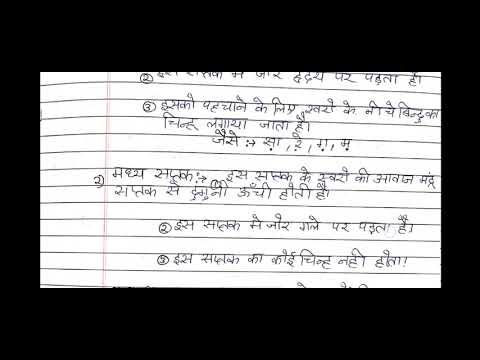 ② इस सप्तक मे जोर हृदय पर पड़ता है।
③ इसको पहचाने के लिए स्वरो के नीचे बिन्दु का
चिन्ह लगाया जाता है।
जैसे :→ स़ा , रे़ , ग़ , म़
2) मध्य सप्तक :→ इस सप्तक के स्वरो की आवाज मंद्र
सप्तक से दुगुनी ऊँची होती है।
② इस सप्तक मे जोर गले पर पड़ता है।
③ इस सप्तक का कोई चिन्ह नही होता।